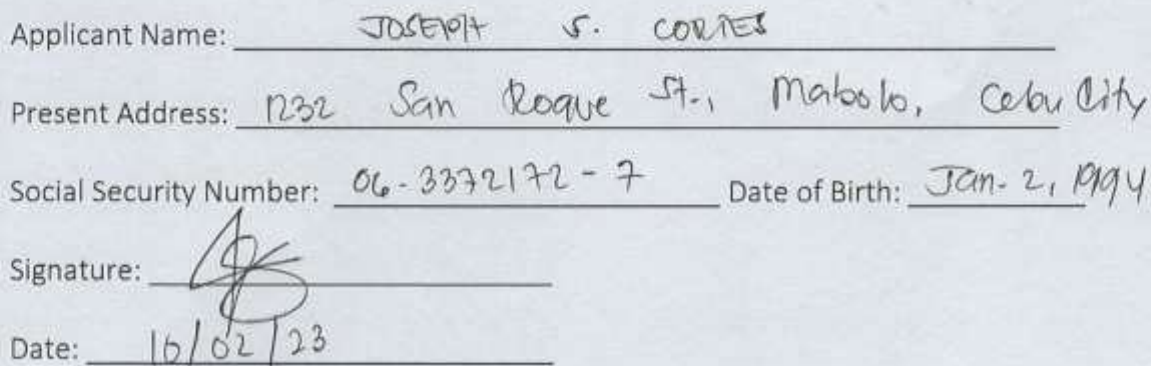 Applicant Name: JOSEPH S. CORTES
Present Address: 1232 San Roque St., Mabolo, Cebu City
Social Security Number: 06-3372172-7 Date of Birth: Jan. 2, 1994
Signature:
Date: 10/02/23